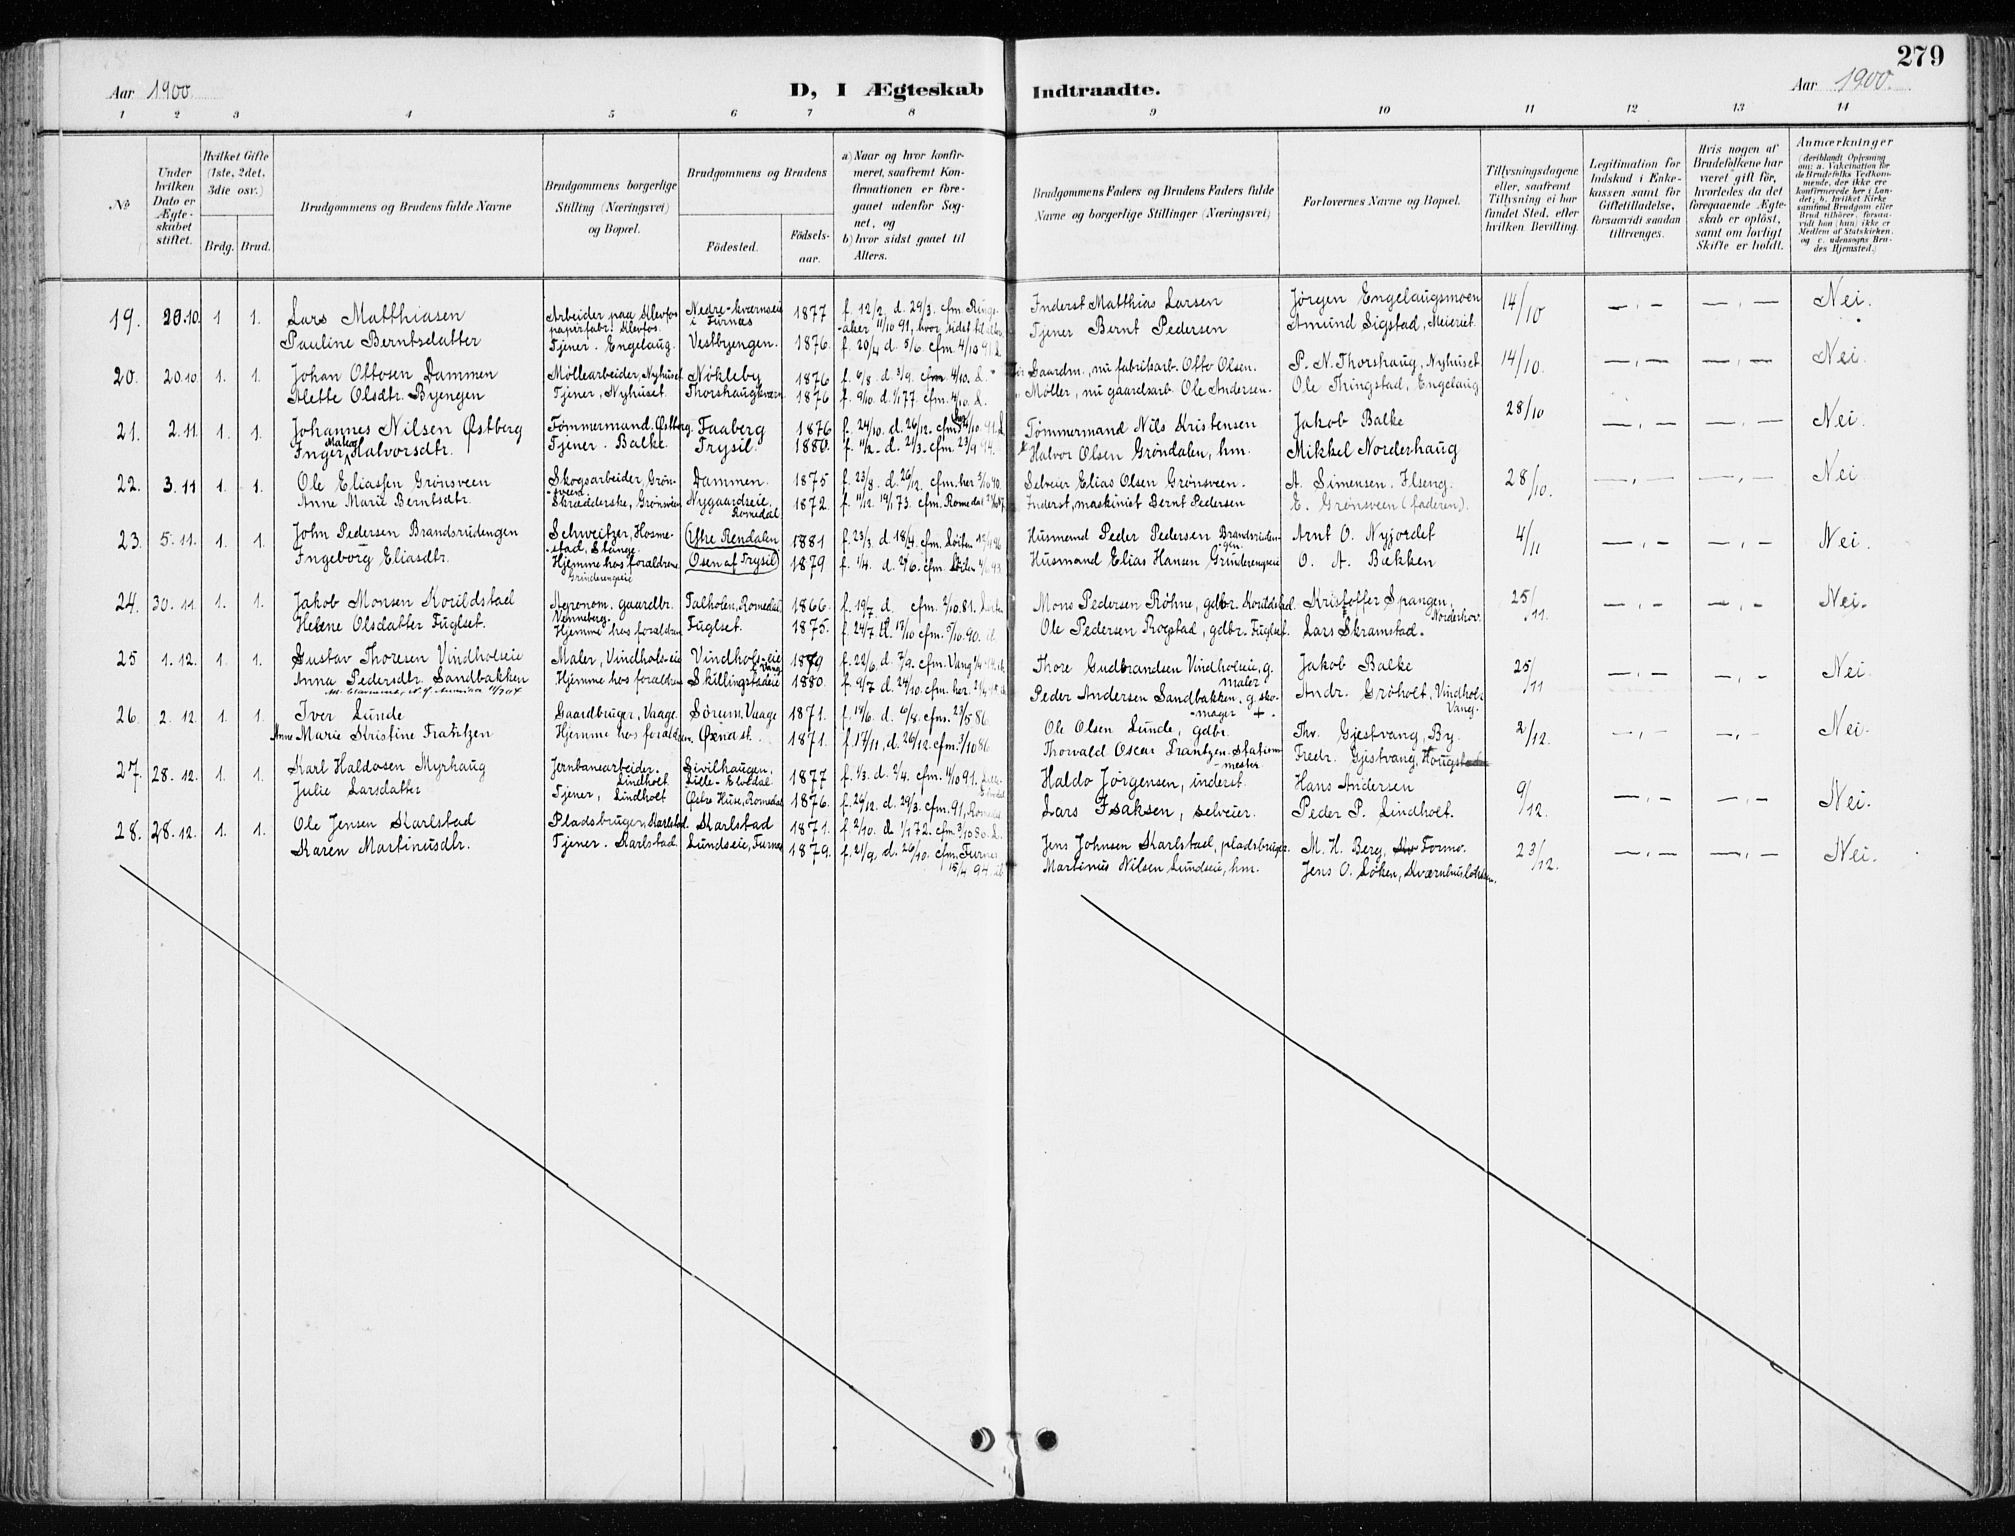 279
Aar 1900
D, I Ægteskab Indtraadte.
Aar 1900.
1 2 3 4 5 6 7 8 9 10 11 12 13 14
No.
Under hvilken Dato er Ægteskabet stiftet.
Hvilket Gifte (1ste, 2det, 3die osv.)
Brdg. Brud.
Brudgommens og Brudens fulde Navne
Brudgommens borgerlige Stilling (Næringsvei) og Bopæl.
Brudgommens og Brudens
Fødested.
Fødselsaar.
a) Naar og hvor konfirmeret, saafremt Konfirmationen er foregaaet udenfor Sognet, og
b) hvor sidst gaaet til Alters.
Brudgommens Faders og Brudens Faders fulde Navne og borgerlige Stillinger (Næringsvei)
Forlovernes Navne og Bopæl.
Tillysningsdagene eller, saafremt Tillysning ei har fundet Sted, efter hvilken Bevilling.
Legitimation for Indskud i Enkekassen samt for Giftetilladelse, forsaavidt saadan tiltrænges.
Hvis nogen af Brudefolkene har været gift før, hvorledes da det foregaaende Ægteskab er opløst, samt om lovligt Skifte er holdt.
Anmærkninger
(deriblandt Oplysning om: a. Vakcination for de Brudefolks Vedkommende, der ikke ere konfirmerede her i Landet; b. hvilket Kirkesamfund Brudgom eller Brud tilhører, forsaavidt han (hun) ikke er Medlem af Statskirken, og c. udensogns Brudes Hjemsted.)
19. 20.10 1 1. Lars Matthiasen Arbeider paa Klevfos papirfabr. Klevfos. Nedre-kværnseie i Furnæs 1877 f. 12/2. d. 29/3. cfm. Ringsaker 11/10 91, Inderst Matthias Larsen Jørgen Engelaugsmoen 14/10 —„— —„— Nei.
Pauline Berntsdatter Tjener. Engelaug. Vestbyengen. 1876. f. 20/4 d. 5/6. cfm. 4/10 91. Tjener Bernt Pedersen Amund Sigstad, Meieriet.
20. 20.10. 1. 1. Johan Ottosen Dammen Møllearbeider, Nyhuset. Nøkleby 1876 f. 6/8. d. 3/9. cfm. 4/10. Gaardm., nu fabriksarb. Otto Olsen. P. N. Thorshaug, Nyhuset 14/10. —„— —„— Nei
Olette Olsdtr. Byengen Tjener, Nyhuset. Thorshaugkværn 1876 f. 9/10. d. 1/1 77. cfm. 4/10. Møller, nu gaardsarb. Ole Andersen. Ole Thingstad, Engelaug
21. 2.11. 1. 1. Johannes Nilsen Østberg Tømmermand, Østberg. Faaberg 1876 f. 24/10. d. 26/12. cfm. Tømmermand Nils Kristensen Jakob Balke 28/10 —„— —„— Nei.
Inger Halvorsdtr. Tjener. Balke. Trysil. 1880. f. 11/2. d. 21/3. cfm. 23/9 94. Halvor Olsen Grøndalen, hm. Mikkel Norderhaug
22. 3.11 1. 1. Ole Eliassen Grønsveen Skogsarbeider, Grønsveen. Dammen. 1875 f. 23/8. d. 26/12. cfm. her 5/10 90. Selveier Elias Olsen Grønsveen. A. Simensen. Ilseng. 28/10. —„— —„— Nei
Anne Marie Berntsdtr. Skrædderske, Grønsveen Nygaardseie, Romedal. 1872. f. 11/12. 19/1 73. cfm. Romedal Inderst, maskinist Bernt Pedersen E. Grønsveen (faderen).
23. 5.11. 1. 1. John Pedersen Brandsrudengen Schweitzer, Hosmestad, Stange. Ytre Rendalen 1881 f. 23/3. d. 18/4. cfm. Løiten Husmand Peder Pedersen Brandsrudengen. Arnt O. Nyjordet 4/11 —„— —„— Nei.
Ingeborg Eliasdtr. Hjemme hos forældrene Grinderengseie Osen af Trysil 1879 f. 1/4. d. 2/6. cfm. Løiten Husmand Elias Hansen Grinderengseie O. A. Bækken
24. 30.11. 1. 1. Jakob Monsen Korildstad Agronom. gaardbr. Venneberg. Falholen, Romedal 1866. f. 19/7. d. cfm. 2/10.81. Mons Pedersen Röhne, gdbr. Korildstad. Kristoffer Spangen, Norderhov. 25/11. —„— —„— Nei.
Helene Olsdatter Fuglset. Hjemme hos forældrene Fuglset. 1875. f. 24/7. d. 17/10 cfm. 5/10.90. Ole Pedersen Rogstad, gdbr. Fuglset. Lars Skramstad.
25 1.12. 1. 1. Gustav Thoresen Vindholseie Maler, Vindhols-eie Vindhols-eie Vang 1879 f. 22/6. d. 7/9. cfm. Vang Thore Gudbrandsen Vindholseie, g. maler Jakob Balke 25/11 —„— —„— Nei.
Anna Pedersdtr. Sandbakken Hjemme hos forældrene Skillingstadeie 1880. f. 9/7 d. 24/10. cfm. her. Peder Andersen Sandbakken, g. skomager + Andr. Grøholt, Vindhol, Vang.
26. 2.12. 1. 1. Iver Lunde Gaardbruger, Vaage. Sörum, Vaage 1871. f. 14/6. d. 6/8. cfm. 23/5 86. Ole Olsen Lunde, gdbr. Thv. Gjestvang, By. 2/12. —„— —„— Nei.
Anne Marie Kristine Frantzen Hjemme hos forældrene. Ørendst. 1871. f. 17/11, d. 26/12. cfm. 3/10 86. Thorvald Oscar Frantzen stationsmester Fredr. Gjestvang,
27. 28.12. 1. 1. Karl Haldosen Myrhaug Jernbanearbeider. Lindholt Sivilhaugen. Lille-Elvedal 1877 f. 1/3. d. 2/4. cfm. 4/10 91. Haldo Jørgensen, inderst. Hans Andersen 9/12. —„— —„— Nei.
Julie Larsdatter Tjener, Lindholt Østre Huse, Romedal 1876. f. 24/12. d. 29/3. cfm. 91, Romedal Lars Isaksen, selveier. Peder P. Lindholt.
28. 28.12. 1. 1. Ole Jensen Karlstad Pladsbruger, Karlstad. Karlstad 1871. f. 2/10. d. 1/1 72. cfm. 3/10 86. Jens Johnsen Karlstad, pladsbruger. M. H. Berg, Formo. 23/12. —„— —„— Nei.
Karen Martinusdtr. Tjener. Karlstad. Lundseie, Furnes 1879. f. 21/9, d. 26/10. cfm. Furnes 15/4 94. Martinus Nilsen Lundseie, hm. Jens O. Løken, Kværnhusløkken.